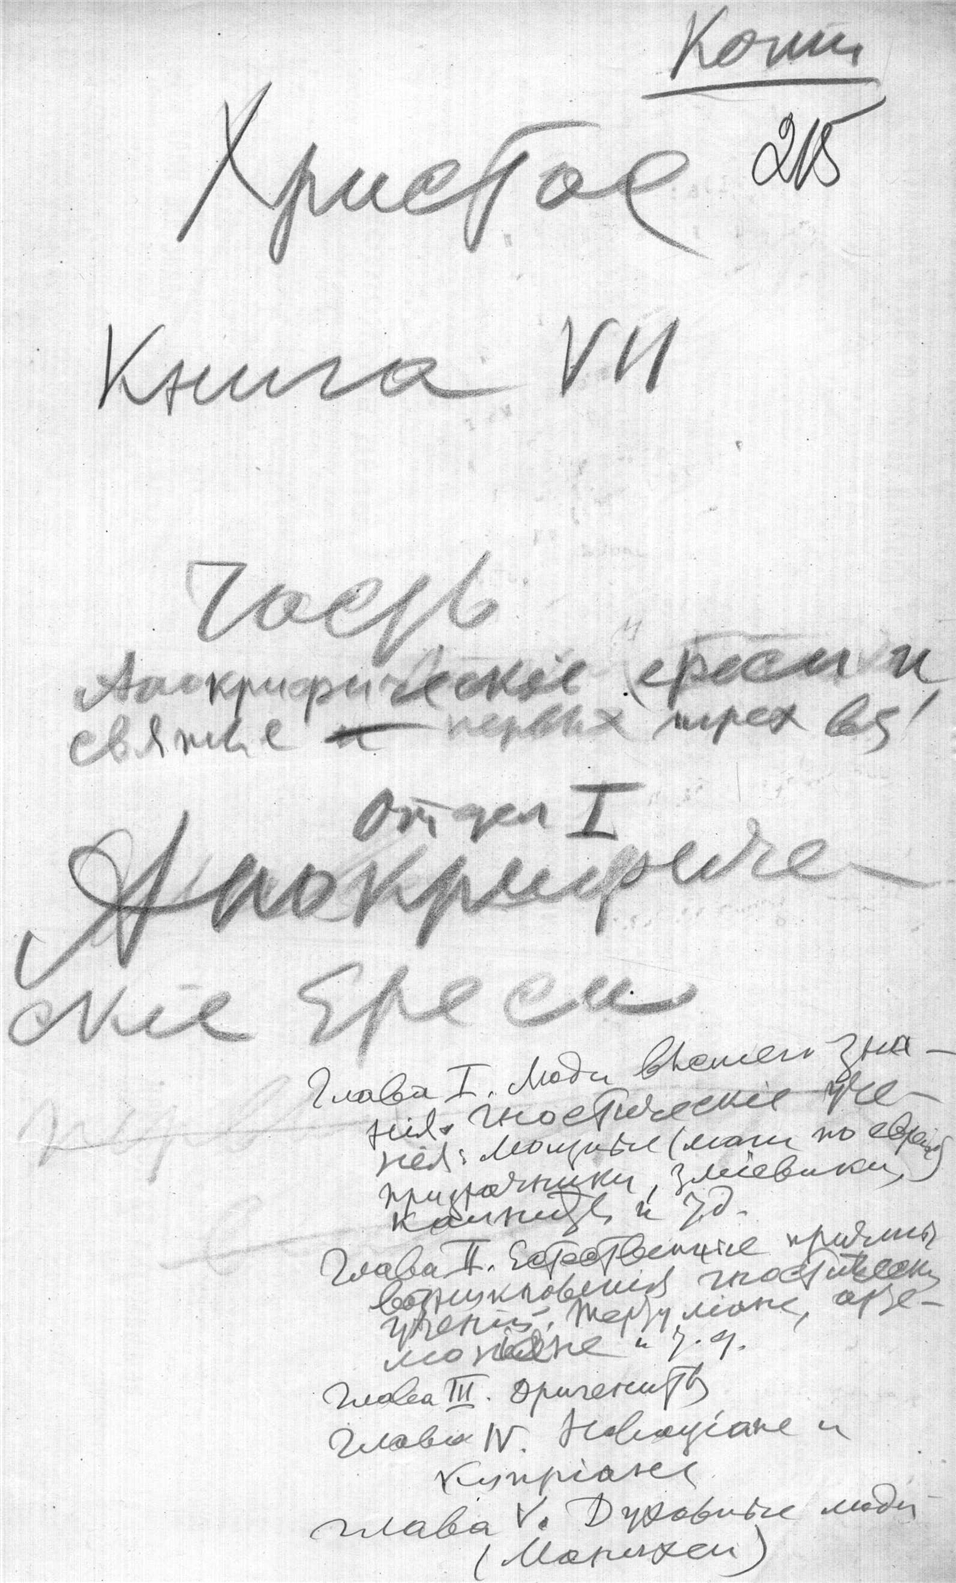 Копия
215
Христос
Книга VII
Часть
Апокрифическіе ереси и
святые первых трех
Отдел I
Апокрифиче-
скіе Ереси
Глава I. Люди высшего зна-
ния. Гностическіе уче-
нія:
призрачники, зміевики,
каиниты и т.д.
Глава II. Естественные причины
возникновенія гностических
ученій. Тертуліане, арте-
моніане и т.д.
Глава III. Оригениты
Глава IV. Новаціане и
Кипріане
Глава V. Духовные люди
(Манихеи)